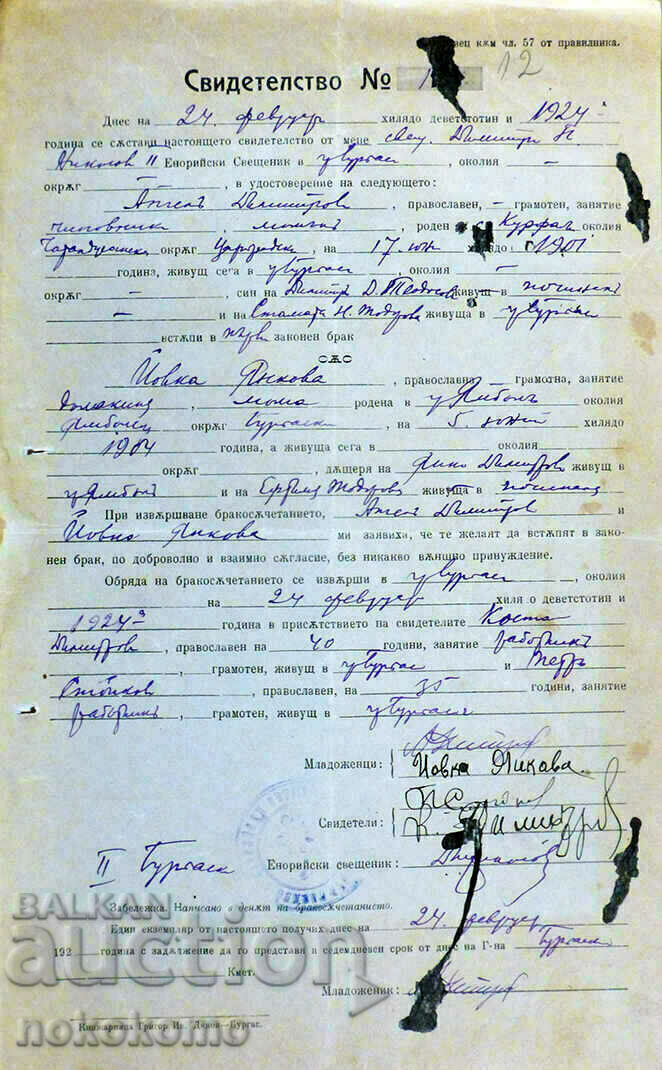 кѫм чл. 57 от правилника.
12
Свидетелство №
Днес на 24. февруар хилядо деветстотин и 1924
година се съставя настоящето свидетелство от мене свещ. Димитър П.
Николов II Енорийски Свещеник в гр Бургас, околия —
окрѫг —, в удостоверение на следующето:
Ангелъ Димитров, православен, — грамотен, занятие
чиновникъ, момъкъ, роден в околия
окрѫг, на 17 юни хилядо 1901
година, живущ сега в гр Бургас, околия —
окрѫг —, син на Димитъръ Д. живущ в починалъ
— и на Стамата Н. Тодорова живуща в гр Бургас
встѫпи в първи законен брак
сѫс
Йовка Янкова, православна — грамотна, занятие
домакиня, мома родена в гр Ямболъ околия
Ямболска окрѫг Бургаски, на 5. юний хилядо
1904 година, а живуща сега в околия
окрѫг, дѫщеря на Янко Димитров живущ в
гр Ямболъ и на Тодорова живуща в
При извѫршване бракосѫчетанието, Ангелъ Димитров и
Йовка Янкова ми заявиха, че те желаят да встѫпят в зако-
нен брак, по доброволно и взаимно сѫгласие, без никакво вѫншно принуждение.
Обряда на бракосѫчетанието се извѫрши в гр Бургас, околия
на 24 февруар хиля о деветстотин и
1924 година в присѫтствието на свидетелите Коста
Димитров, православен на 40 години, занятие работникъ
, грамотен, живущ в гр Бургас и Петръ
Стойков, православен, на 35 години, занятие
работникъ, грамотен, живущ в гр Бургас
Младоженци:
Йовка Янкова
Свидетели:
К. Димитров
II Бургаски Енорийски свещеник:
Забележка. Написано в денят на бракосѫчетанието.
Един екземпляр от настоящето получих днес на 24. февруар
192 година с задѫлжение да го представя в седемдневен срок от днес на Г-на Бургаски
Кмет.
Младоженик:
Книжарница Григор Ив. Дяков—Бургас.
BALKAN
auction
nokokomo